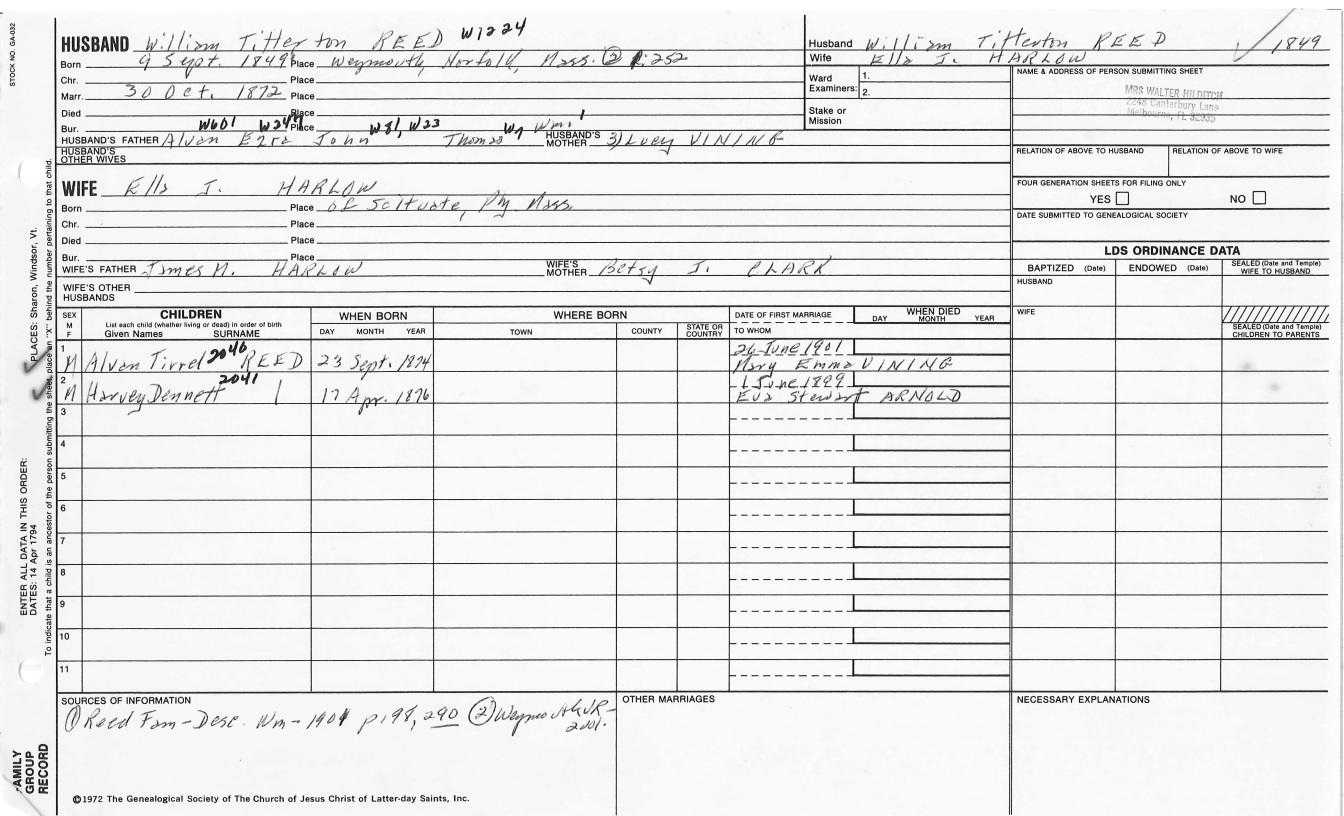 STOCK NO. GA-032
HUSBAND William Titterton REED W1224
Born 9 Sept. 1849 Place Weymouth, Norfolk, Mass. ② 1:252
Chr. Place
Marr. 30 Oct. 1872 Place
Died Place
Bur. Place
W601 W249 W81, W23 W7 Wm1
HUSBAND'S FATHER Alvan Ezra John Thomas HUSBAND'S MOTHER 3) Lucy VINING
HUSBAND'S OTHER WIVES
WIFE Ella J. HARLOW
Born Place of Scituate, Ply. Mass.
Chr. Place
Died Place
Bur. Place
WIFE'S FATHER James M. HARLOW WIFE'S MOTHER Betsy J. CLARK
WIFE'S OTHER HUSBANDS
Husband William Titterton REED 1849
Wife Ella J. HARLOW
Ward Examiners: 1.
2.
Stake or Mission
NAME & ADDRESS OF PERSON SUBMITTING SHEET
MRS WALTER HILDITCH
2248 Canterbury Lane
Melbourne, FL 32935
RELATION OF ABOVE TO HUSBAND RELATION OF ABOVE TO WIFE
FOUR GENERATION SHEETS FOR FILING ONLY
YES NO
DATE SUBMITTED TO GENEALOGICAL SOCIETY
LDS ORDINANCE DATA
BAPTIZED (Date) ENDOWED (Date) SEALED (Date and Temple) WIFE TO HUSBAND
HUSBAND
WIFE
SEALED (Date and Temple) CHILDREN TO PARENTS
SEX M F
CHILDREN
List each child (whether living or dead) in order of birth
Given Names SURNAME
WHEN BORN
DAY MONTH YEAR
WHERE BORN
TOWN COUNTY STATE OR COUNTRY
DATE OF FIRST MARRIAGE
TO WHOM
WHEN DIED
DAY MONTH YEAR
1 M Alvan Tirrel 2040 REED 23 Sept. 1874 26 June 1901
Mary Emma VINING
2 M Harvey Dennett 2041 17 Apr. 1876 1 June 1899
Eva Stewart ARNOLD
3
4
5
6
7
8
9
10
11
SOURCES OF INFORMATION
① Reed Fam-Desc. Wm-1901 p198, 290 ② Weymouth VR-
OTHER MARRIAGES
NECESSARY EXPLANATIONS
©1972 The Genealogical Society of The Church of Jesus Christ of Latter-day Saints, Inc.
PLACES: Sharon, Windsor, Vt.
To indicate that a child is an ancestor of the person submitting the sheet, place an "X" behind the number pertaining to that child.
ENTER ALL DATA IN THIS ORDER:
DATES: 14 Apr 1794
FAMILY
GROUP
RECORD